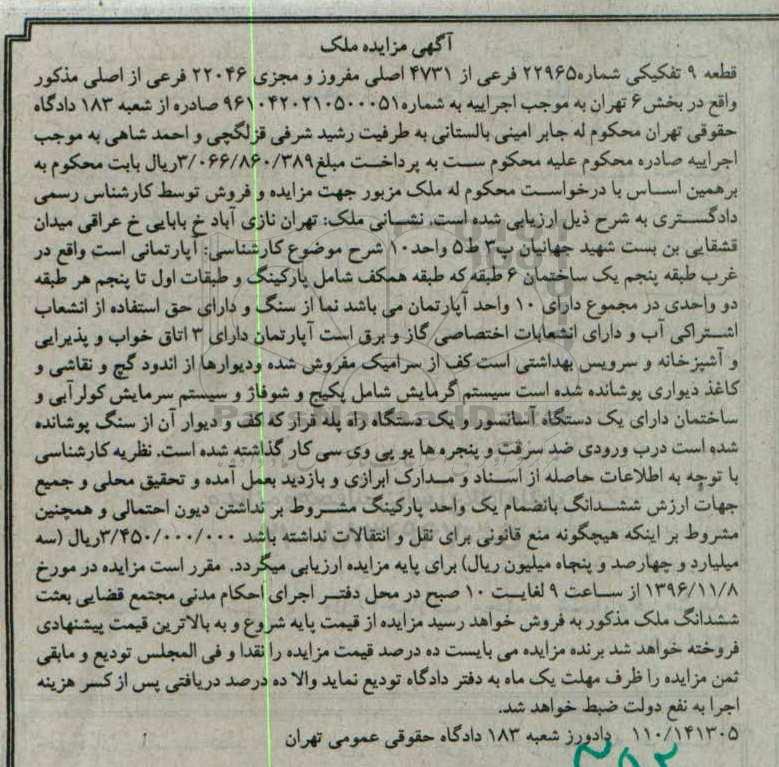 آگهی مزایده ملک
قطعه ۹ تفکیکی شماره۲۲۹۶۵ فرعی از ۴۷۳۱ اصلی مفروز و مجزی ۲۲۰۴۶ فرعی از اصلی مذکور
واقع در بخش۶ تهران به موجب اجراییه به شماره۹۶۱۰۴۲۰۲۱۰۵۰۰۰۵۱ صادره از شعبه ۱۸۳ دادگاه
حقوقی تهران محکوم له جابر امینی بالستانی به طرفیت رشید شرفی قزلگچی و احمد شاهی به موجب
اجراییه صادره محکوم علیه محکوم ست به پرداخت مبلغ۳/۰۶۶/۸۶۰/۳۸۹ریال بابت محکوم به
برهمین اساس با درخواست محکوم له ملک مزبور جهت مزایده و فروش توسط کارشناس رسمی
دادگستری به شرح ذیل ارزیابی شده است. نشانی ملک: تهران نازی آباد خ بابایی خ عراقی میدان
قشقایی بن بست شهید جهانیان پ۳ ط۵ واحد۱۰ شرح موضوع کارشناسی: آپارتمانی است واقع در
غرب طبقه پنجم یک ساختمان ۶ طبقه که طبقه همکف شامل پارکینگ و طبقات اول تا پنجم هر طبقه
دو واحدی در مجموع دارای ۱۰ واحد آپارتمان می باشد نما از سنگ و دارای حق استفاده از انشعاب
اشتراکی آب و دارای انشعابات اختصاصی گاز و برق است آپارتمان دارای ۳ اتاق خواب و پذیرایی
و آشپزخانه و سرویس بهداشتی است کف از سرامیک مفروش شده ودیوارها از اندود گچ و نقاشی و
کاغذ دیواری پوشانده شده است سیستم گرمایش شامل پکیج و شوفاژ و سیستم سرمایش کولرآبی و
ساختمان دارای یک دستگاه آسانسور و یک دستگاه راه پله قرار که کف و دیوار آن از سنگ پوشانده
شده است درب ورودی ضد سرقت و پنجره ها یو پی وی سی کار گذاشته شده است. نظریه کارشناسی
با توجه به اطلاعات حاصله از اسناد و مدارک ابرازی و بازدید بعمل آمده و تحقیق محلی و جمیع
جهات ارزش ششدانگ بانضمام یک واحد پارکینگ مشروط بر نداشتن دیون احتمالی و همچنین
مشروط بر اینکه هیچگونه منع قانونی برای نقل و انتقالات نداشته باشد ۳/۴۵۰/۰۰۰/۰۰۰ریال (سه
میلیارد و چهارصد و پنجاه میلیون ریال) برای پایه مزایده ارزیابی میگردد. مقرر است مزایده در مورخ
۱۳۹۶/۱۱/۸ از ساعت ۹ لغایت ۱۰ صبح در محل دفتر اجرای احکام مدنی مجتمع قضایی بعثت
ششدانگ ملک مذکور به فروش خواهد رسید مزایده از قیمت پایه شروع و به بالاترین قیمت پیشنهادی
فروخته خواهد شد برنده مزایده می بایست ده درصد قیمت مزایده را نقدا و فی المجلس تودیع و مابقی
ثمن مزایده را ظرف مهلت یک ماه به دفتر دادگاه تودیع نماید والا ده درصد دریافتی پس از کسر هزینه
اجرا به نفع دولت ضبط خواهد شد.
۱۱۰/۱۴۱۳۰۵ دادورز شعبه ۱۸۳ دادگاه حقوقی عمومی تهران